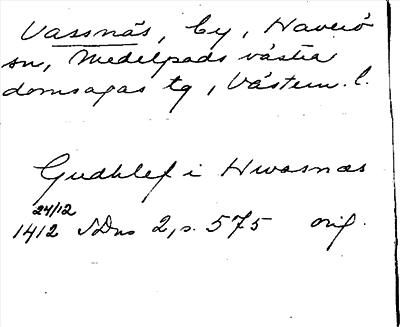 Vassnäs, by, Haverö
sn, Medelpads västra
domsagas tg, Västern. l.
Gudhlef i Hwasnæs
24/12
1412 SDns 2, s. 575 orig.